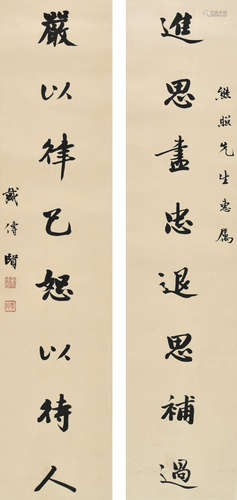 進思盡忠退思補過
熊照先生惠屬
嚴以律己恕以待人
戴傳賢